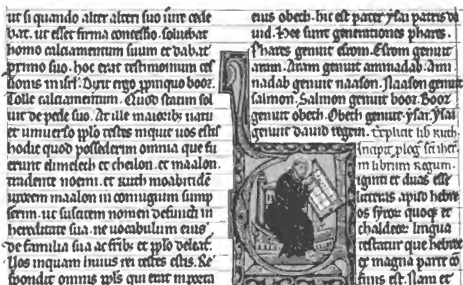 ut si quando alter alteri suo iure cede
bat. ut esset firma concessio. soluebat
homo calciamentum suum et dabat
proximo suo. hoc erat testimonium ces
sionis in isrl. Dixit ergo propinquo booz.
Tolle calciamentum. Quod statim sol
uit de pede suo. At ille maioribus natu
et uniuerso pplo testes inquit uos estis
hodie quod possederim omnia que fu
erunt elimelech et chelion. et maalon.
tradente noemi. et ruth moabitidē
uxorem maalon in coniugium sump
serim. ut suscitem nomen defuncti in
hereditate sua. ne uocabulum eius
de familia sua ac fribus et pplo deleat.
Uos inquam huius rei testes estis. Re
spondit omnis ppls qui erat in porta
eius obeth. hic est pater ysai patris da
uid. Hee sunt generationes phares.
Phares genuit esrom. Esrom genuit
aram. Aram genuit aminadab. Ami
nadab genuit naason. Naason genuit
salmon. Salmon genuit booz. Booz
genuit obeth. Obeth genuit ysai. Ysai
genuit dauid regem. Explicit lib ruth
Incipit plog sci iher.
in librum regum.
iginti et duas esse
litteras. apud hebre
os syrorum quoque et
chaldeorum lingua
testatur que hebree
et magna parte cō
finis est. Nam et